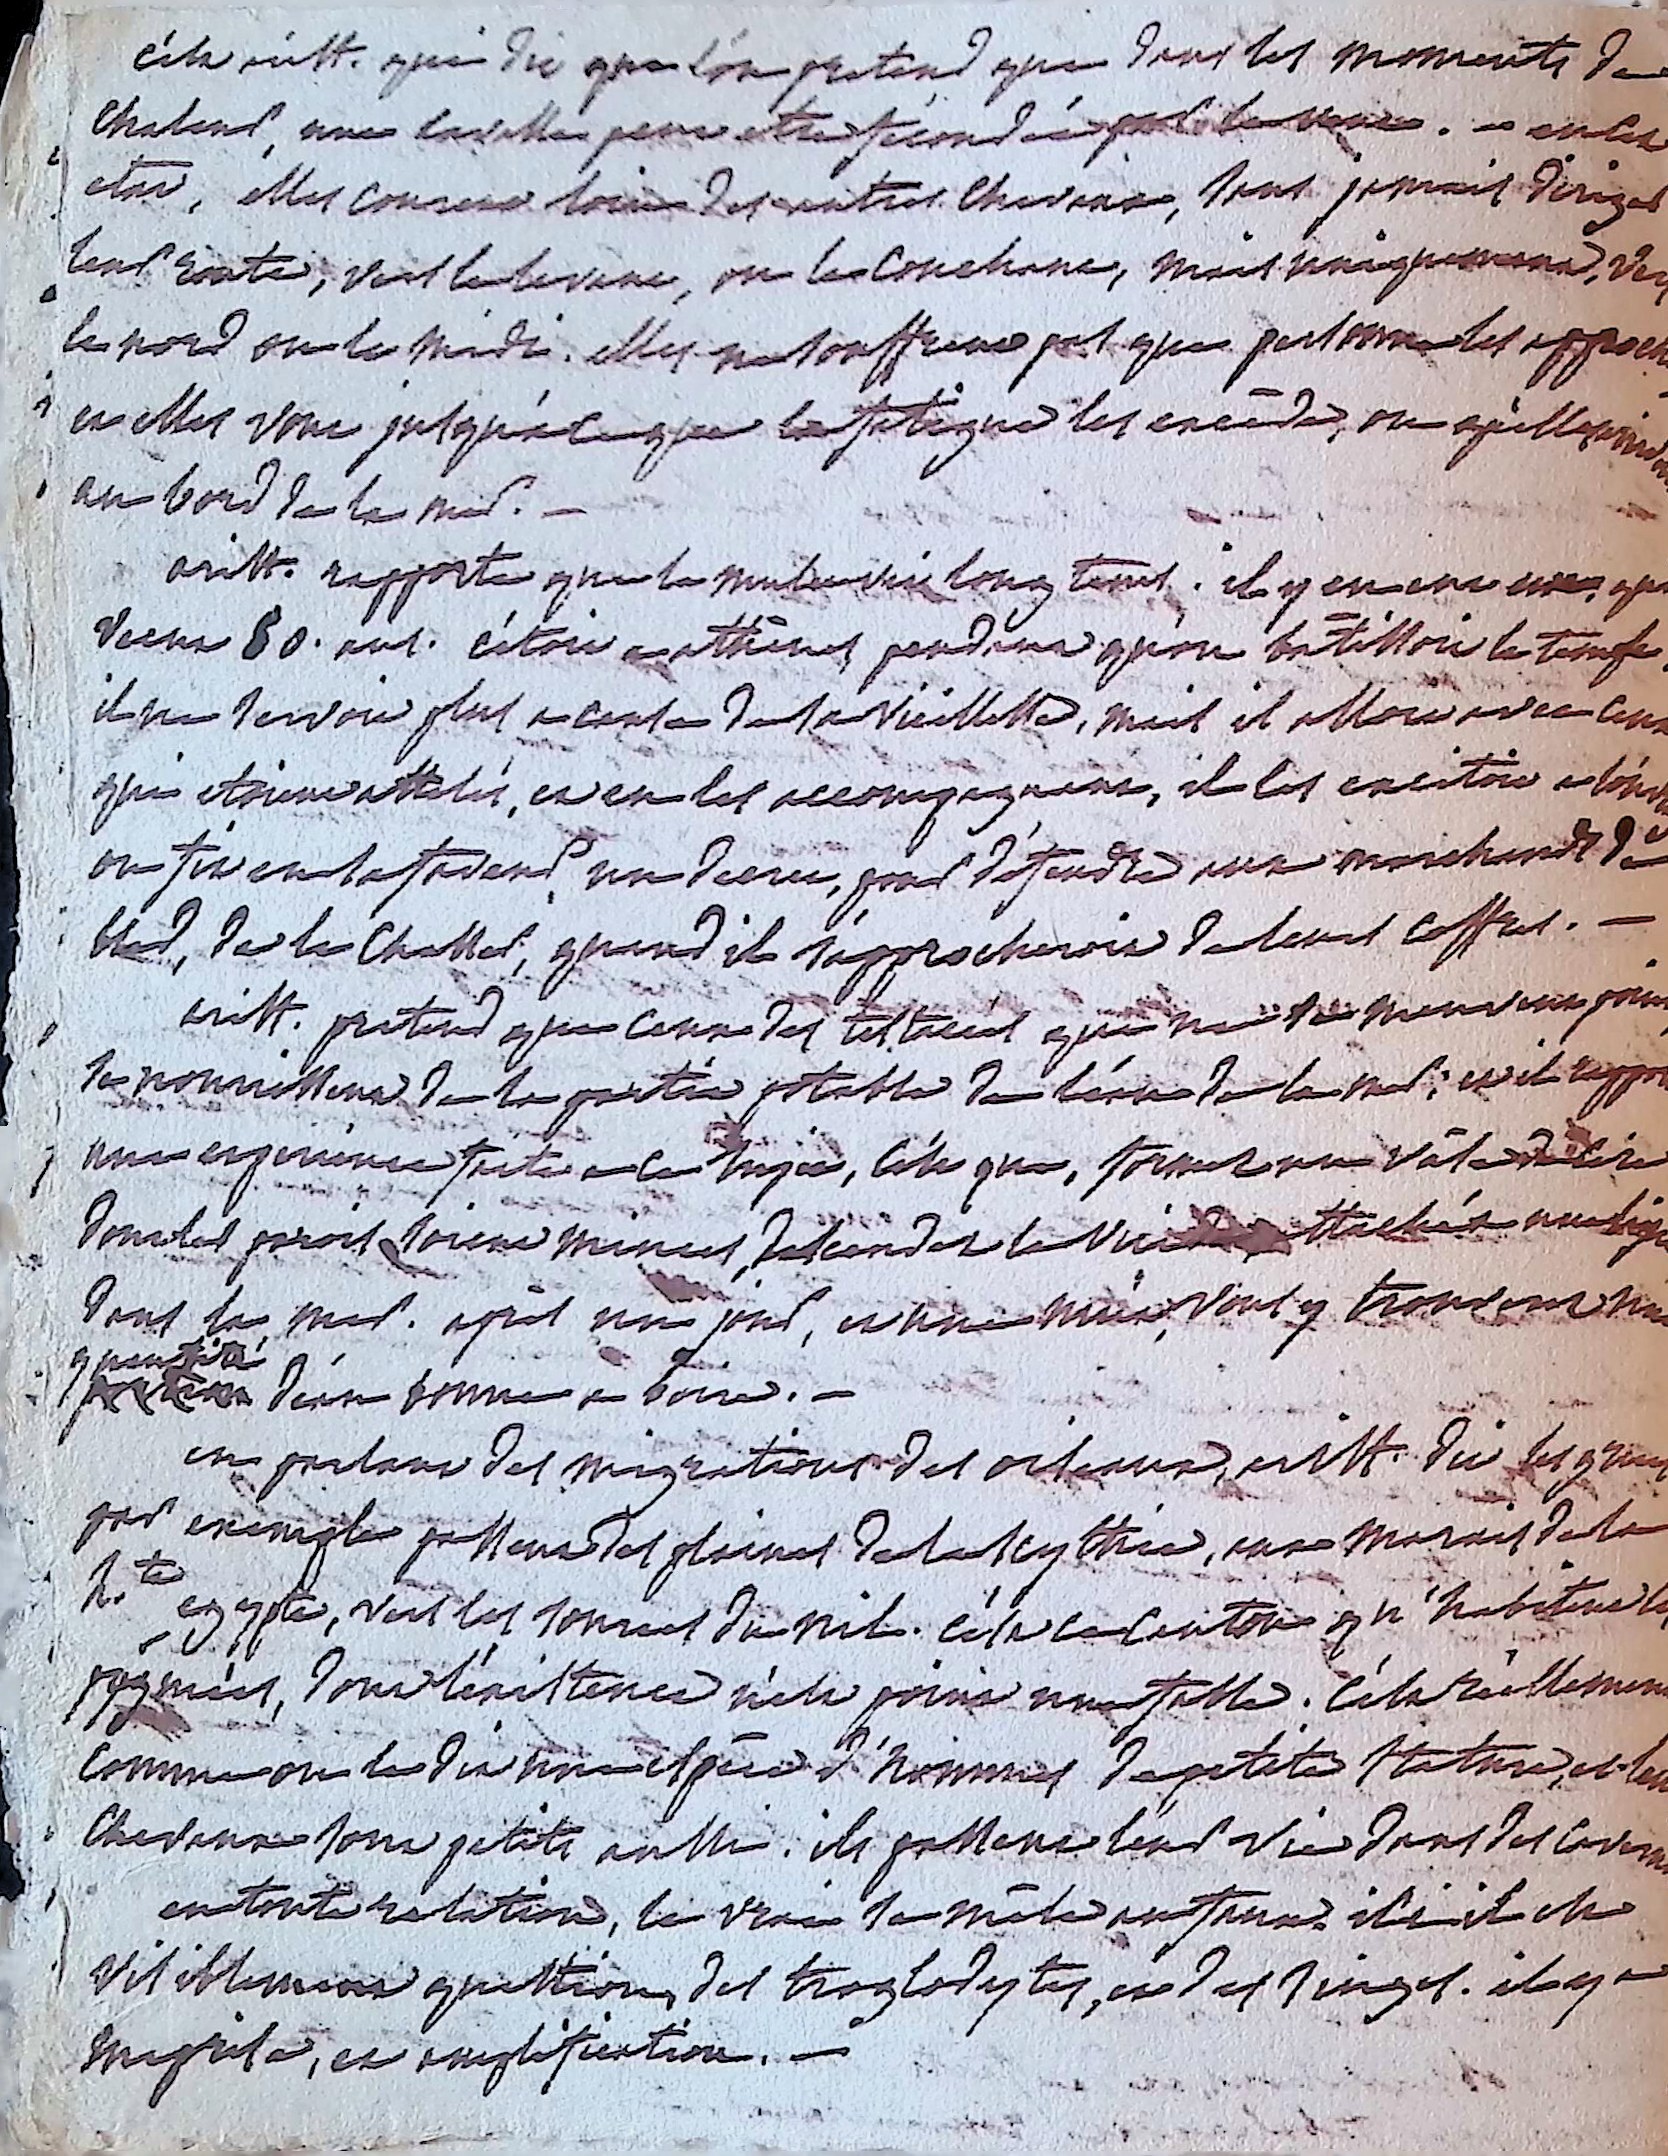 c'est arist. qui dit que l'on pretend que dans les moments de
chaleur, une cavalle peut etre fécondée par le vent. – en cet
etat, elles courent loin des autres chevaux, sans jamais diriger
leur route, vers le levant, ou le couchant, mais uniquement, vers
le nord ou le midi. elles ne souffrent pas que personne les approche
et elles vont jusqu'à ce que la fatigue les excède, ou qu'elles
au bord de la mer. –
arist. rapporte que le mulet vit long tems. il y en eut un, qui
vecut 80. ans. c'étoit a athènes pendant qu'on bâtissoit le temple,
il ne servoit plus a cause de sa vieillesse, mais il alloit avec ceux
qui etoient attelés, et en les accompagnant, il les excitoit a
on fit en sa faveur un decret, pour défendre aux marchands de
bled, de le chasser, quand il s'approcheroit de leurs coffres. –
arist. pretend que ceux des testacés qui ne se meuvent point
se nourrissent de la partie potable de l'eau de la mer; et il rapporte
une expérience faite a ce sujet, c'est que, formez un vâse de cire
dont les parois soient minces, descendez le vuide attaché a une ligne
dans la mer. après un jour, et une nuit, vous y trouverez une
quantité
d'eau bonne a boire. –
en parlant des migrations des oiseaux, arist. dit les grues
par exemple passent des plaines de la scythie, aux marais de la
h.te egypte, vers les sources du nil. c'est ce canton qu'habitent les
pygmées, dont l'existence n'est point une fable. c'est réellement
comme on le dit une espèce d'hommes de petite stature, et leurs
chevaux sont petits aussi. ils passent leur vie dans des cavernes
en toute relation, le vrai se mêle au faux. ici il est
visiblement question, des troglodytes, et des singes. il y a
meprise, et amplification. –